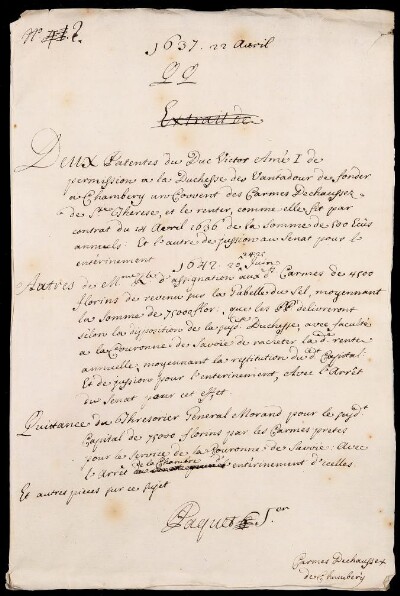 N° 412.
1637. 22 Avril
QQ
Extrait de
Deux Patentes du Duc Victor Amé I de
permission a la Duchesse de Vantadour de fonder
a Chambery un Covent des Carmes Dechaussez
de Ste Therese, et le renter, comme elle fit par
contrat du 24 Avril 1636 de la Somme de 500 Ecûs
annuels: Et l'autre de jussion au Senat pour l'
enterinement
1642. 20 Juin
Autres de d'assignation aux Carmes de 4500
florins de revenu sur la Gabelle du Sel, moyennant
la Somme de 75000 flor. que les PP. delivreront
selon la disposition de la susd. Duchesse, avec faculté
a la Couronne de Savoie de racheter la de rente
annuelle, moyennant la restitution du dt Capital
Et de jussion pour l'enterinement, Avec l'Arrêt
du Senat pour cet effet.
Quittance du Thresorier General Morand pour le susdt
Capital de 75000 florins par les Carmes pretez
pour le Service de la Couronne de Savoie: Avec
l'Arrêt de la Chambre enterinement d'icelles
Et autres pieces sur ce sujet
Paquet 5.
Carmes Dechaussez
de Chambery